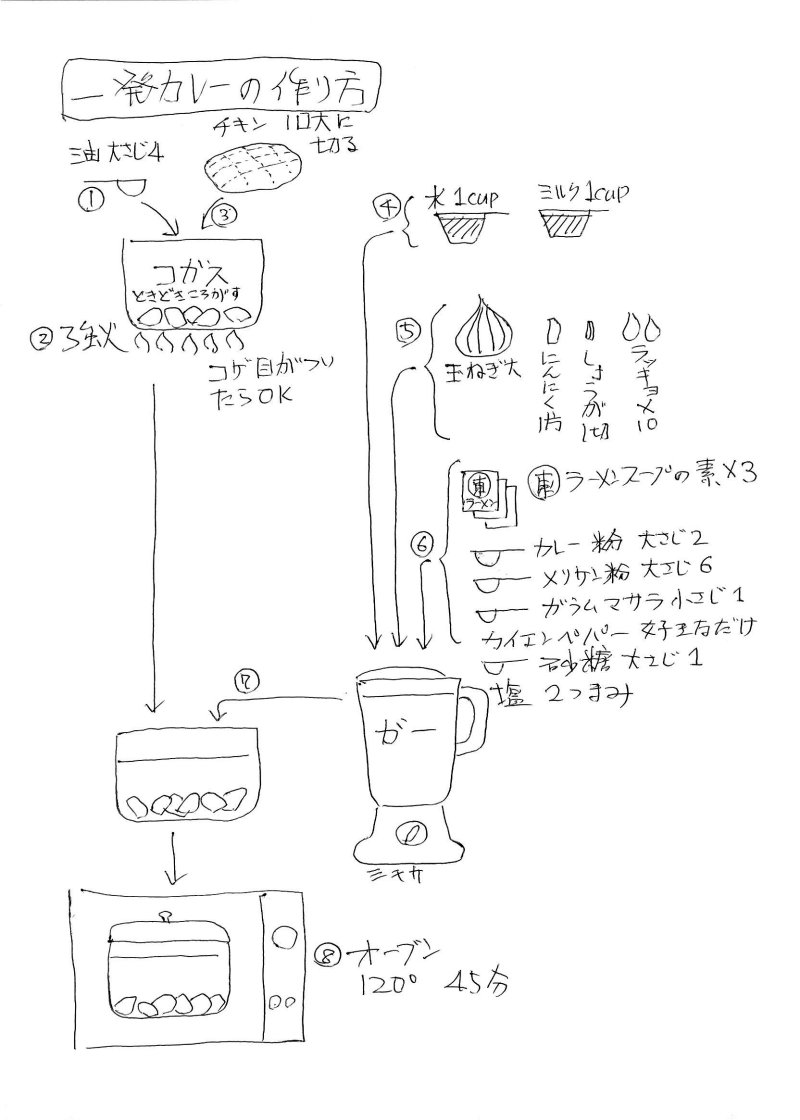 一発カレーの作り方
チキン 1口大に
切る
油 大さじ4
①
③
コガス
ときどきころがす
② 強火
コゲ目がつい
たらOK
④ 水 1cup ミルク1cup
⑤
玉ねぎ大
にんにく1片
しょうが1切
ラッキョ×10
⑥
東
ラーメン
東 ラーメンスープの素×3
カレー粉 大さじ2
メリケン粉 大さじ6
ガラムマサラ 小さじ1
カイエンペパー 好きなだけ
砂糖 大さじ1
塩 2つまみ
⑦
ガー
ミキサ
⑧ オーブン
120° 45分